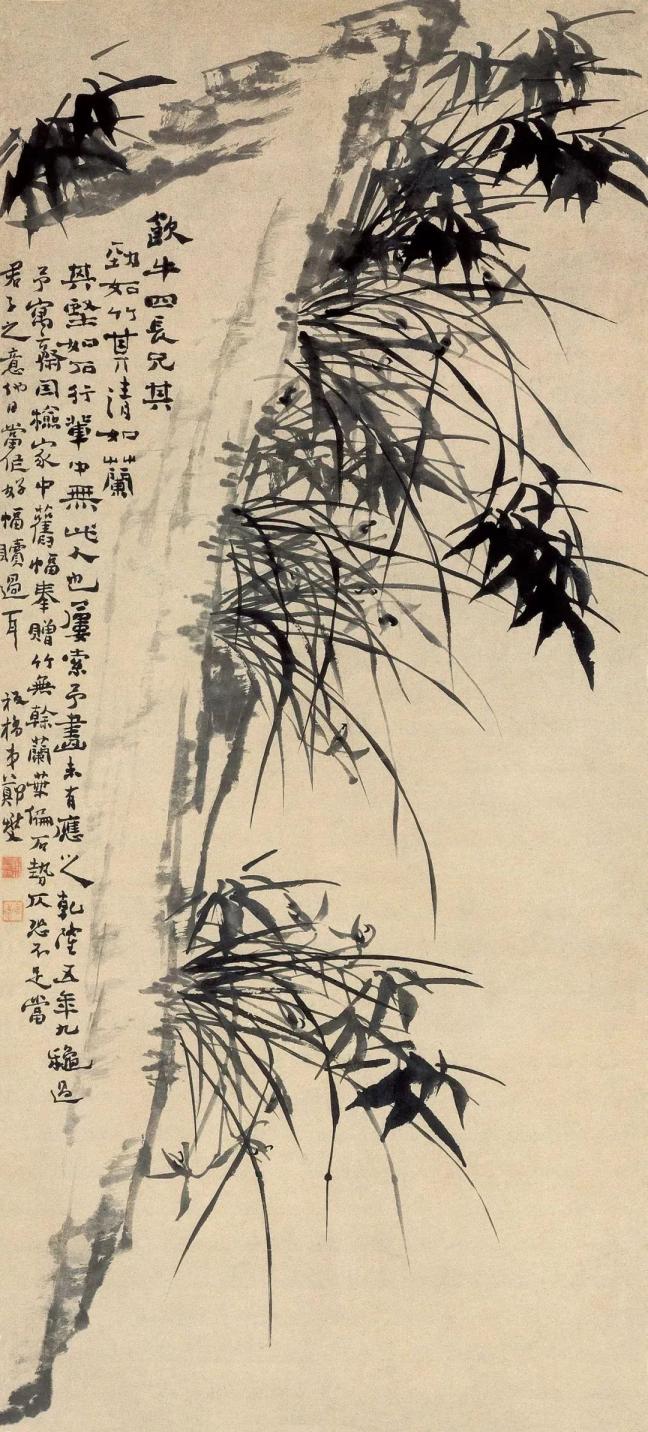 飲牛四長兄其
勁如竹其清如蘭
其堅如石行輩中無此人也屢索予畫未有應之乾隆五年九穐過
予寓齋因檢家中舊幅奉贈竹無幹蘭葉偏石勢仄恐不足當
君子之意他日當作好幅贖過耳 板橋弟鄭燮